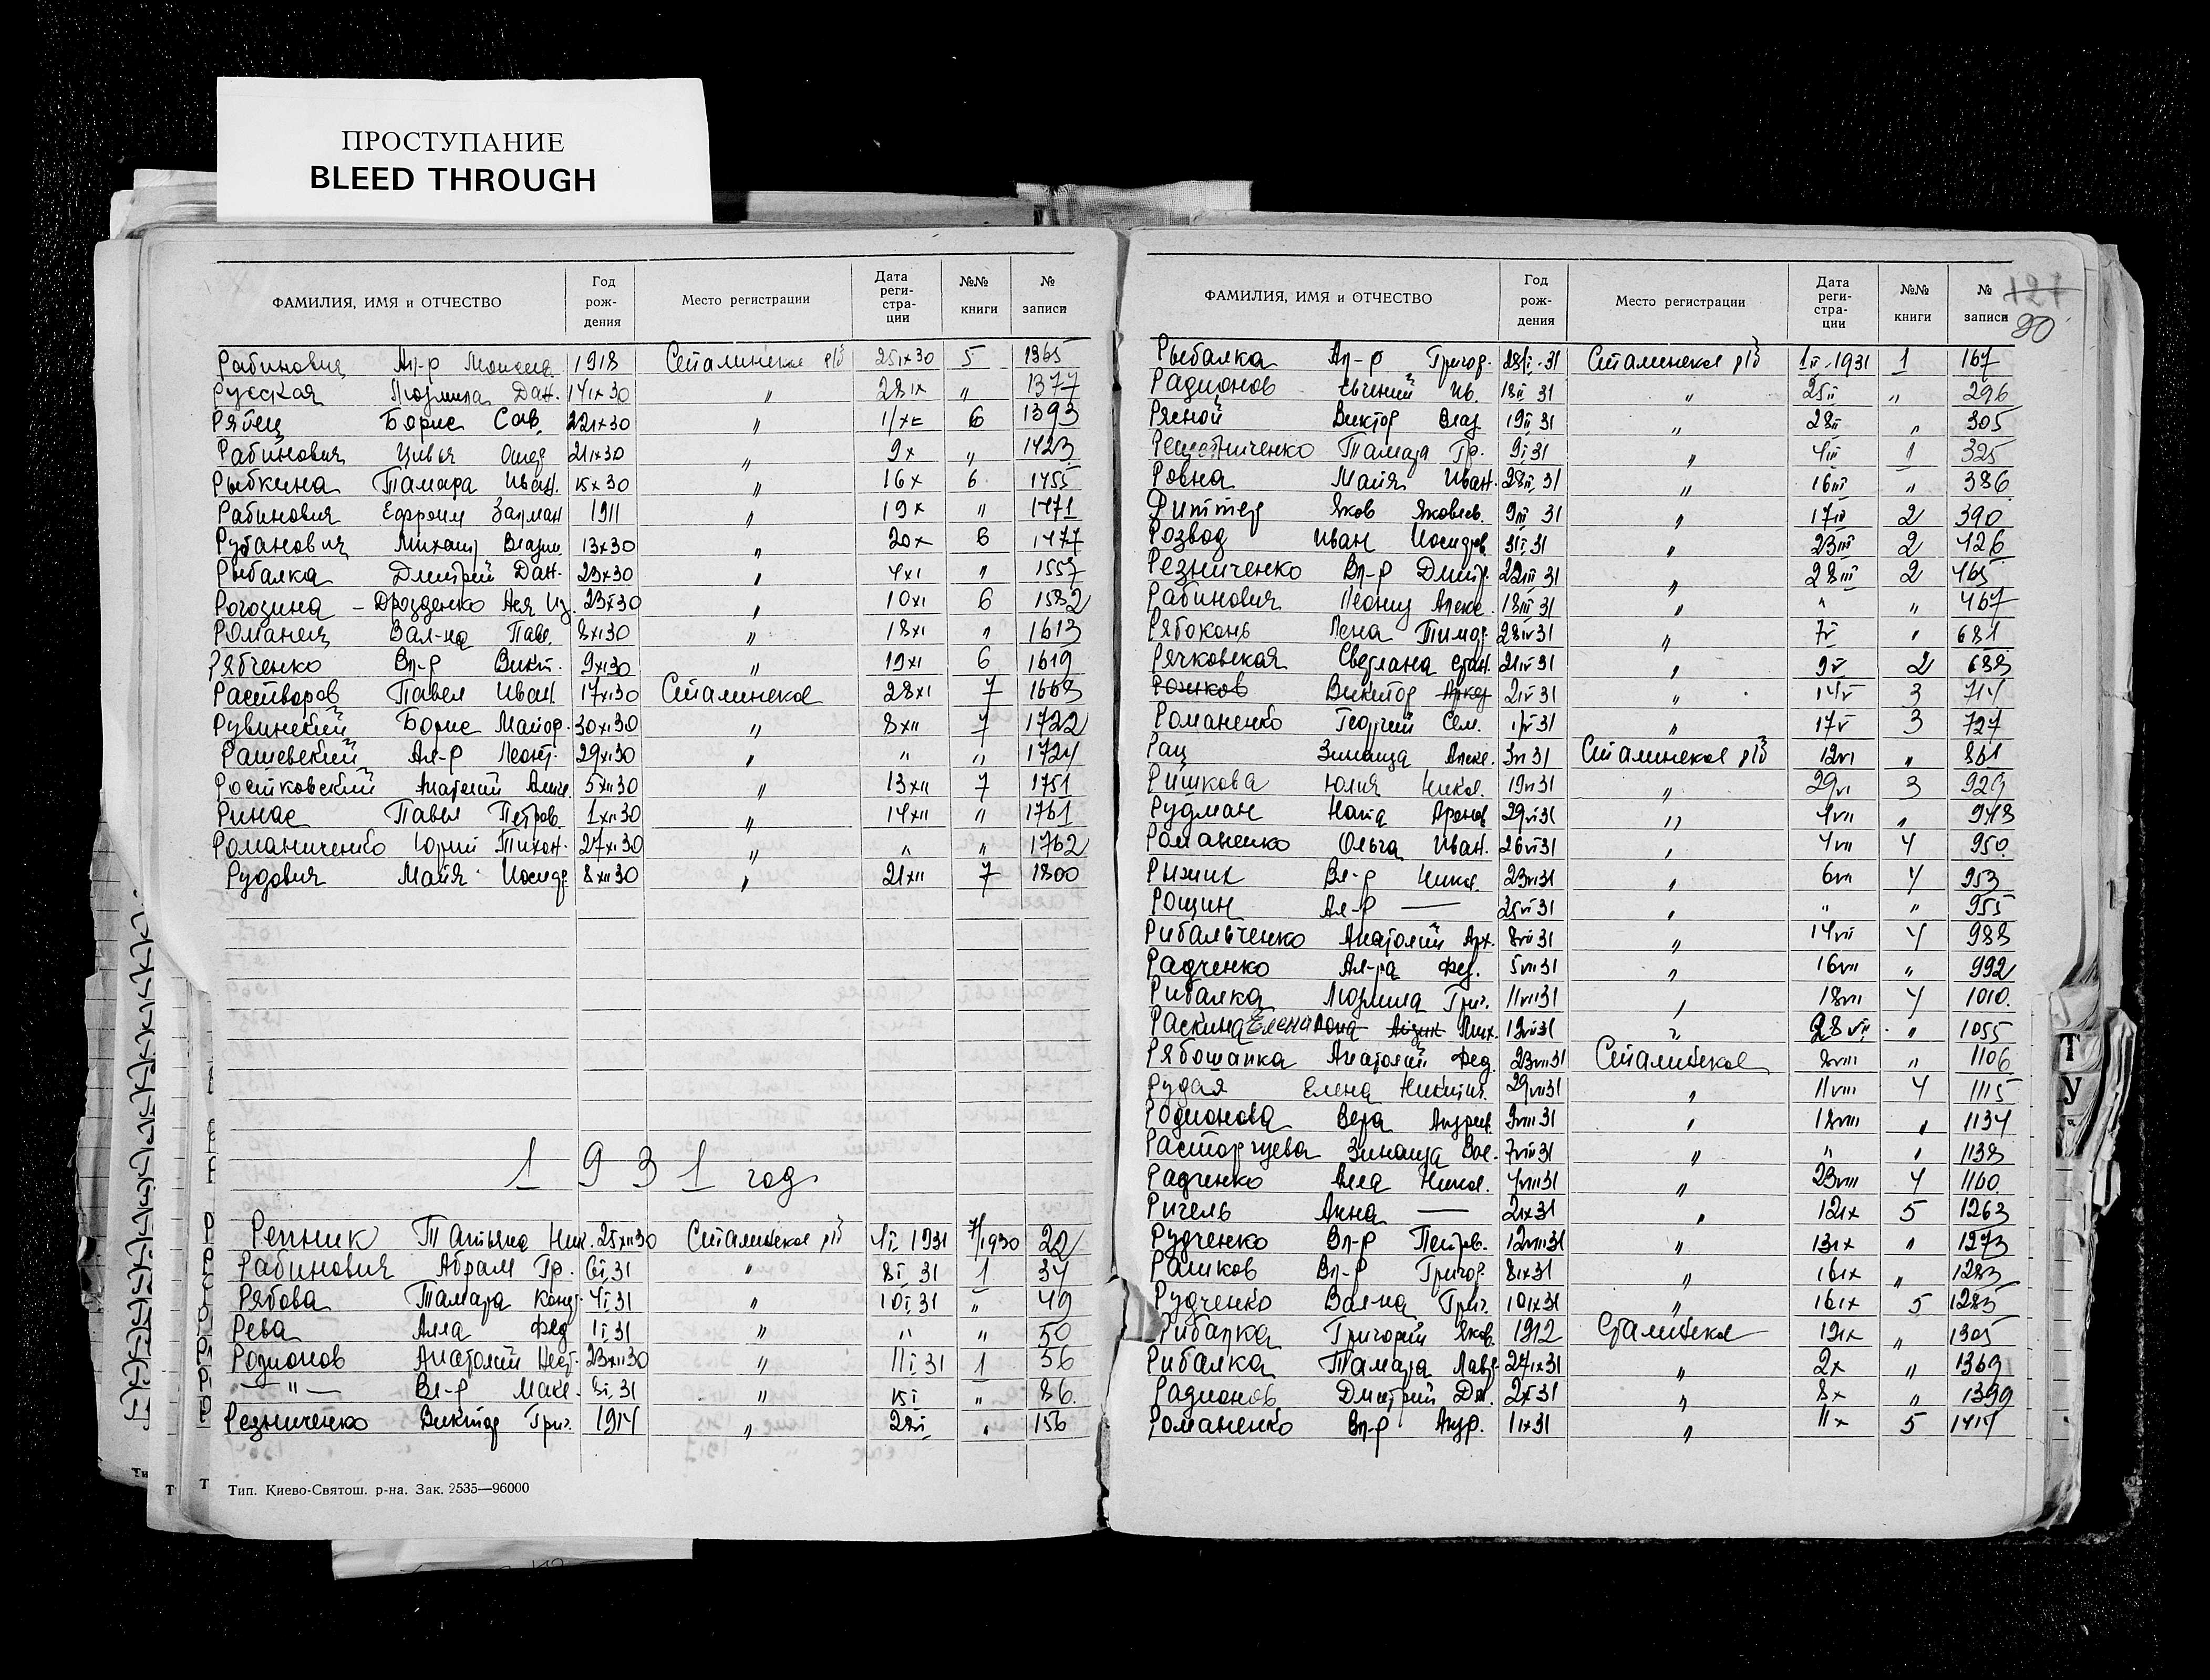 ПРОСТУПАНИЕ
BLEED THROUGH
ФАМИЛИЯ, ИМЯ и ОТЧЕСТВО Год рождения Место регистрации Дата регистрации №№ книги № записи
Рабинович Ал-р Моисеев. 1918 Сталинское р/б 25IX30 5 1365
Русская Людмила Дан. 14IX30 " 28IX " 1377
Рябец Борис Сав. 22IX30 " 6 1393
Рабинович Цивья 21IX30 " 9X " 1423
Рыбкина Тамара Иван. 15X30 " 16X 6 1455
Рабинович Ефроим Залман 1911 " 19X " 1471
Рубанович Михаил 13X30 " 20X 6 1477
Рыбалка Дмитрий Дан. 23X30 " 4XI " 1557
Рогозина - Дрозденко Ася Из. 23X30 " 10XI 6 1582
Романец Вал-на Павл. 8XI30 " 18XI " 1613
Рябченко Вл-р Викт. 9XI30 " 19XI 6 1619
Растворов Павел Иван. 17XI30 Сталинское 28XI 7 1668
Рувинский Борис Майор. 30XI30 " 8XII 7 1722
Рашевский Ал-р Леонт. 29XI30 " " " 1724
Ростковский Анатолий 5XII30 " 13XII 7 1751
Ринас Павел Петров. 1XII30 " 14XII " 1761
Романиченко Юрий Тихон. 27XI30 " " " 1762
Рудович Майя Иосиф. 8XII30 " 21XII 7 1800
1931 год
Репник Татьяна Ник. 25XII30 Сталинское р/б 4I 1931 7/1930 22
Рабинович Абрам Гр. 6I31 " 8I 31 1 34
Рябова Тамара Конд. 4I31 " 10I31 " 49
Рева Алла Фед 1I31 " " " 50
Родионов Анатолий Нест. 23XII30 " 11I31 1 56
—"— Вл-р Макс. 8I31 " 15I " 86
Резниченко Виктор Григ. 1914 " 28I " 156
Тип. Киево-Святош. р-на. Зак. 2535—96000
121
80
ФАМИЛИЯ, ИМЯ и ОТЧЕСТВО Год рождения Место регистрации Дата регистрации №№ книги № записи
Рыбалка Ал-р Григор. 28I-31 Сталинское р/б 1II-1931 1 167
Радионов Евгений Ив. 18II31 " 25II " 296
Рясной Виктор Влад 19II31 " 28II " 305
Решетниченко Тамара Гр. 9I31 " 4III 1 325
Ровна Майя Иван. 28II31 " 16III " 386
Риттер Яков Яковлев. 9III31 " 17III 2 390
Розвод Иван Исидров. 31I31 " 23III 2 426
Резниченко Вл-р Дмитр. 22III31 " 28III 2 465
Рабинович Леонид Алекс. 18III31 " " " 467
Рябоконь Лена Тимоф. 28IV31 " 7V " 681
Рячковская Светлана Стан. 21IV31 " 9V 2 688
Рожков Виктор Аркад 2IV31 " 14V 3 714
Романенко Георгий Сем. 1V31 " 17V 3 727
Рац Зинаида Алекс. 3VI31 Сталинское р/б 12VI " 861
Ришкова Юлия Никол. 19VI31 " 29VI 3 929
Рудман Ната Аронов 29VI31 " 4VII " 948
Романенко Ольга Иван. 26VI31 " 4VII 4 950
Рыжик Вл-р Никол. 23VI31 " 6VII 4 953
Рощин Ал-р — 25VI31 " " " 955
Рибальченко Анатолий Арх. 8VII31 " 14VII 4 988
Радченко Ал-ра Фед. 5VII31 " 16VII " 992
Рибалка Людмила Григ. 11VII31 " 18VII 4 1010
Раскина Елена Мих. 19VII31 " 28VII " 1055
Рябошапка Анатолий Фед. 23VII31 Сталинское 8VIII " 1106
Рудая Елена Никитич. 29VII31 " 11VIII 4 1115
Родионова Вера Андреев. 9VIII31 " 18VIII " 1134
Расторгуева Зинаида Вас. 7VIII31 " " " 1138
Радченко Алла Никол. 4VIII31 " 23VIII 4 1160
Ригель Анна — 2IX31 " 12IX 5 1263
Рудченко Вл-р Петров. 12VIII31 " 13IX " 1273
Рашков Вл-р Григор. 8IX31 " 16IX " 1283
Рудченко Вал-на Григ. 10IX31 " 16IX 5 1285
Рибалка Григорий Яков. 1912 Сталинское 19IX " 1305
Рибалка Тамара Лавр. 27IX31 " 2X " 1369
Радионов Дмитрий Дм. 2X31 " 8X " 1399
Романенко Вл-р Андр. 1IX31 " 11X 5 1414